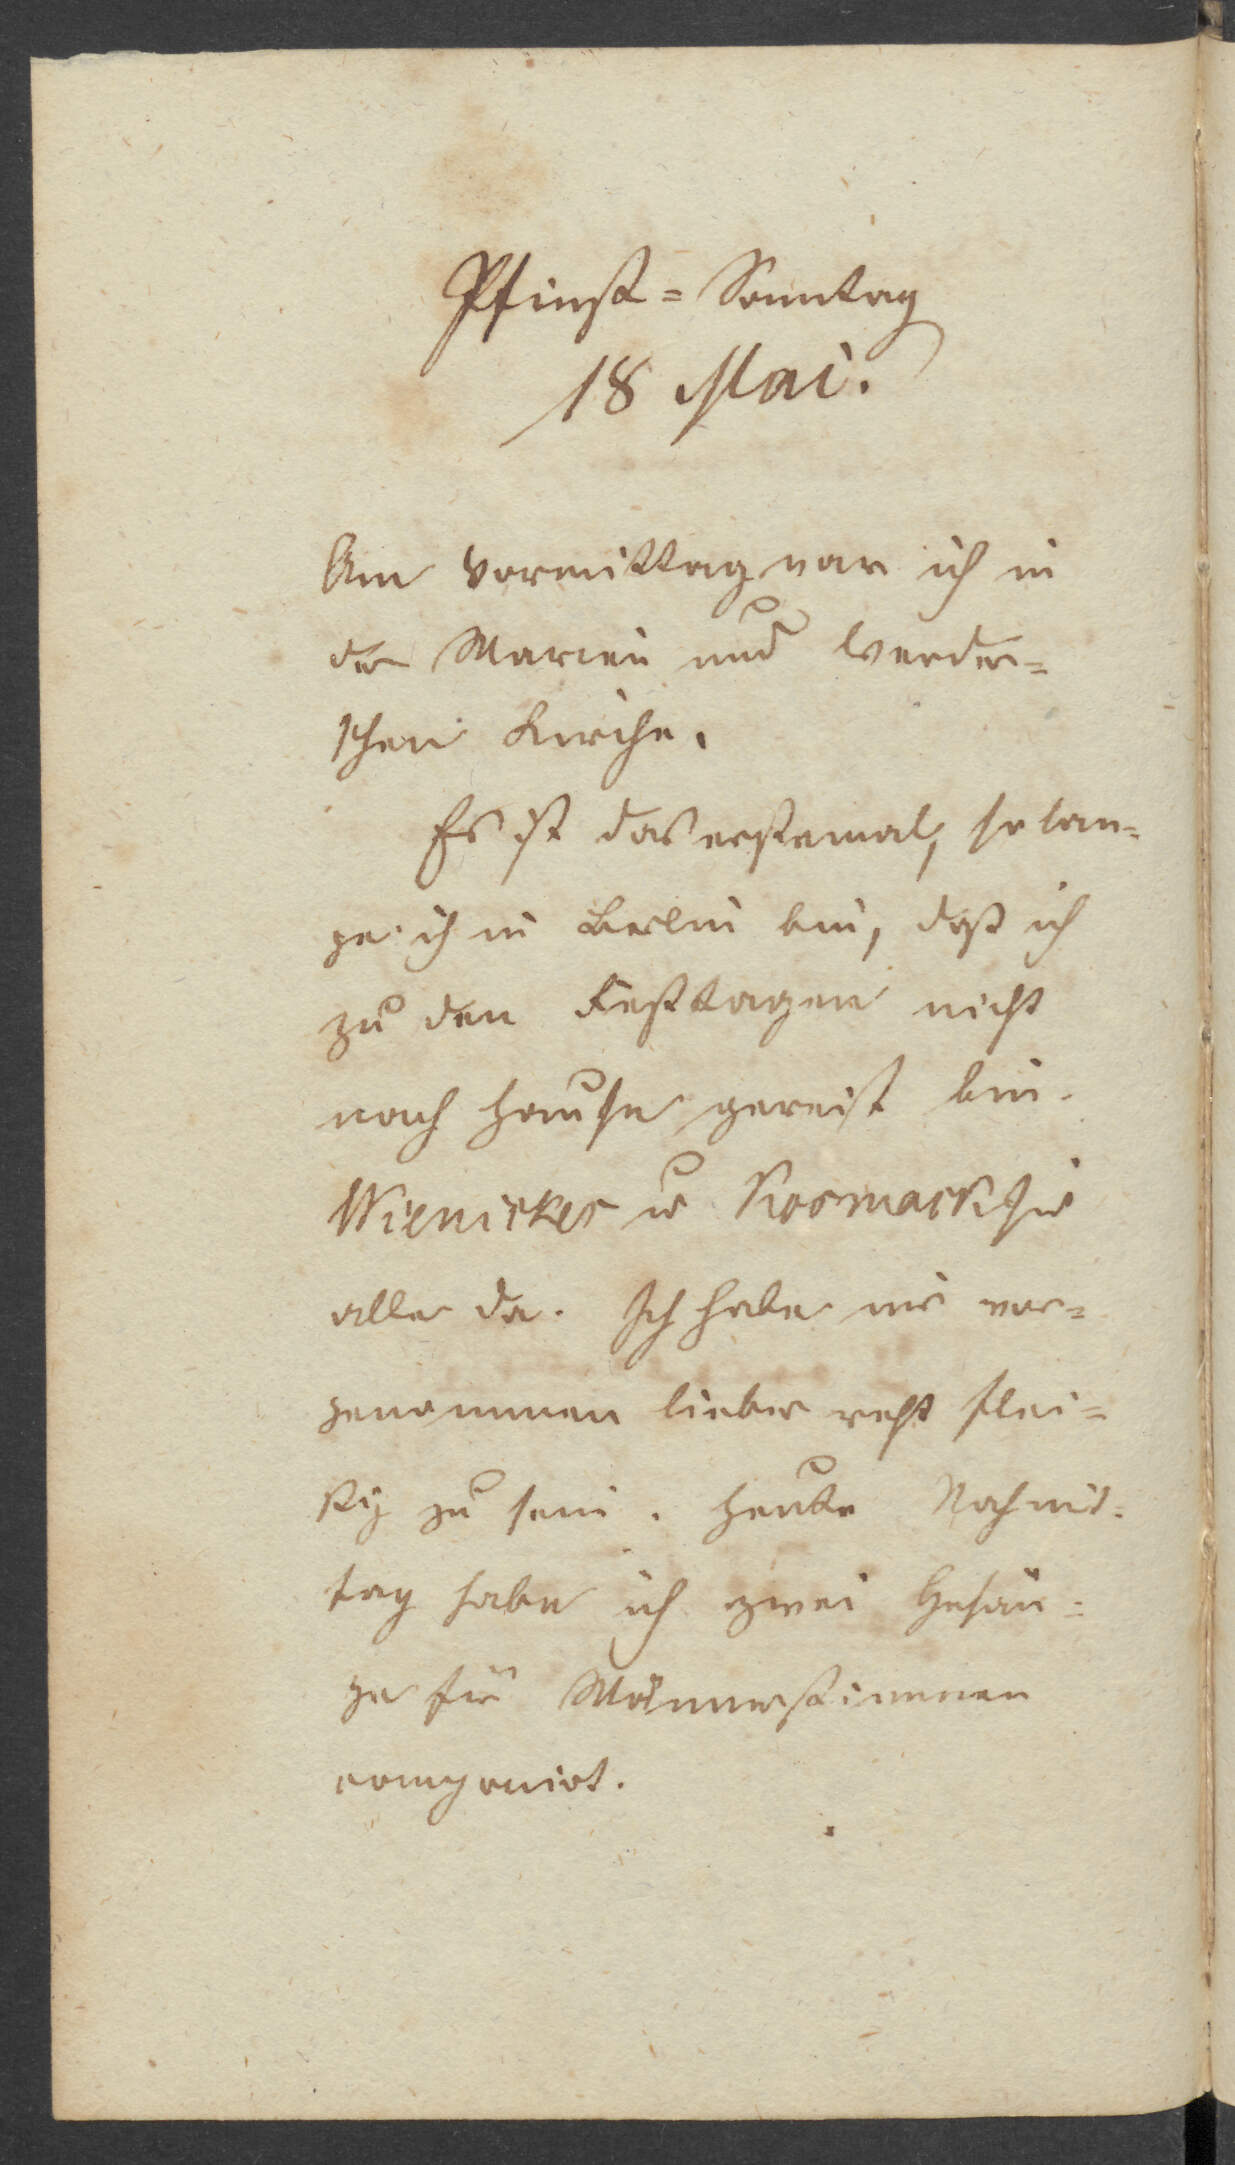 Pfinst=Sonntag
18 Mai.
Am Vormittag war ich in
der Marien und Werder=
schen Kirche.
Es ist das erstemal, so lan=
ge ich in Berlin bin, daß ich
zu den Festtagen nicht
nach Hause gereist bin.
Wienickes u
alle da. Ich habe mir vor=
genommen lieber recht flei=
ßig zu sein. Heute Nachmit=
tag habe ich zwei Gesän=
ge für Männerstimmen
componirt.